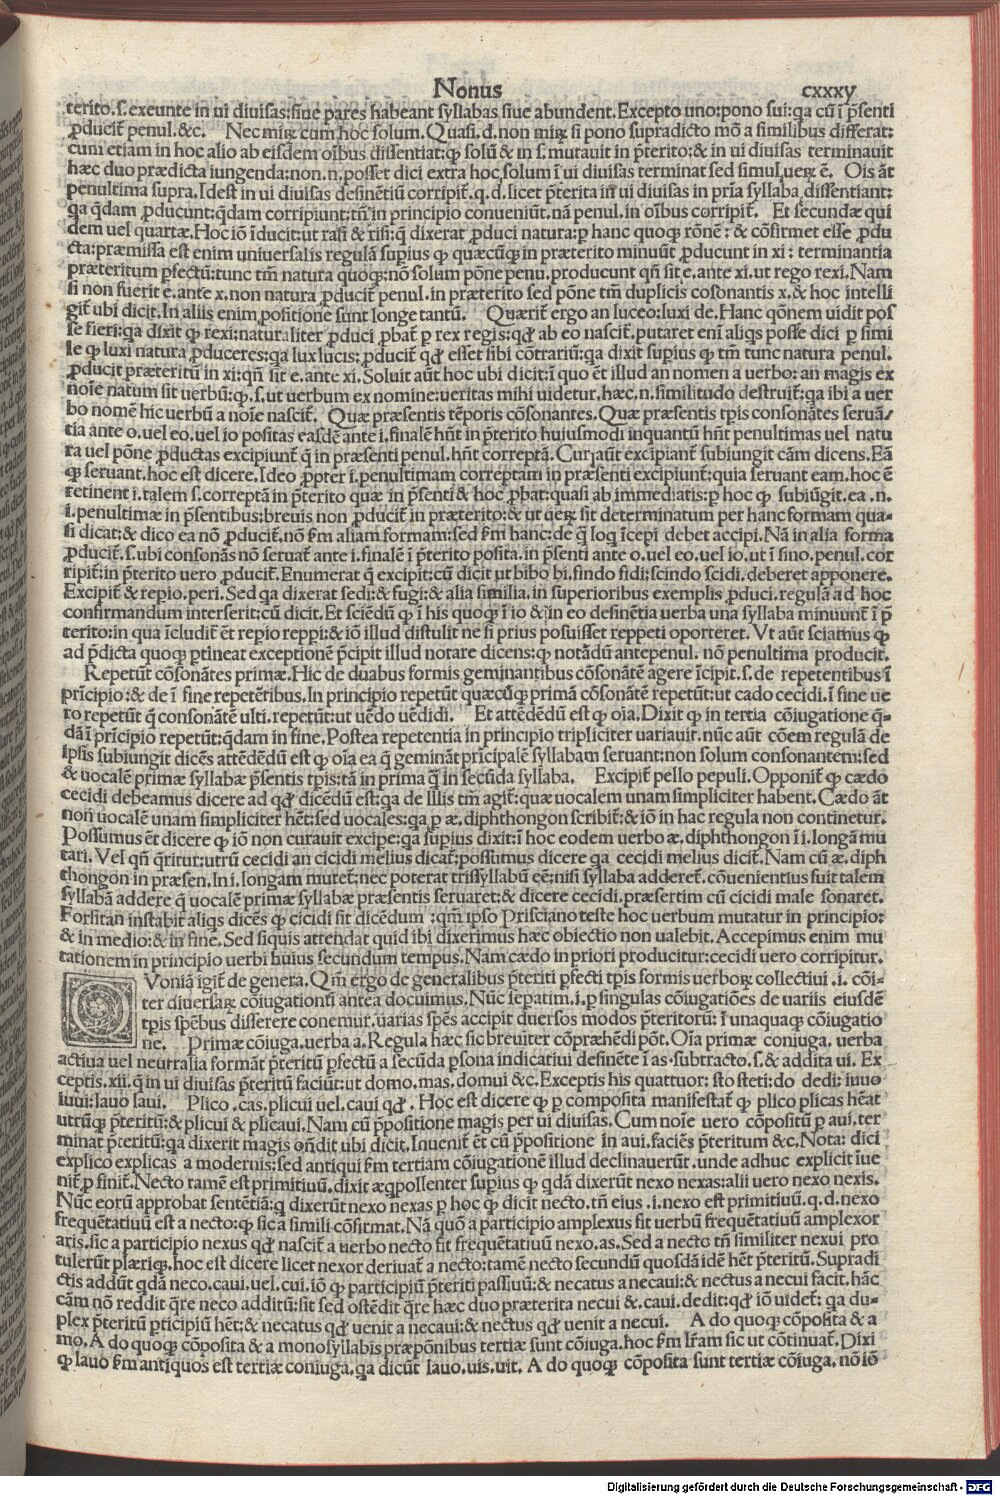 Nonus
cxxxy
terito.ſ.exeunte in ui diuiſas:ſiue pares habeant ſyllabas ſiue abundent.Excepto uno:pono ſui:qa cū ī p̄ſenti
ꝓducit̄ penul.&c. Nec miꝝ cum hoc ſolum.Quaſi.d.non miꝝ ſi pono ſupradicto mō a ſimilibus differat:
cum etiam in hoc alio ab eiſdem oībus diſſentiat:ꝙ ſolū & in ſ.mutauit in p̄terito:& in ui diuiſas terminauit
hæc duo prædicta iungenda:non.n.poſſet dici extra hoc ſolum ī ui diuiſas terminat ſed ſimul.ueꝝ ē. Oīs āt
penultima ſupra.Ideſt in ui diuiſas deſinētiū corripit̄.q.d.licet p̄terita in ui diuiſas in prīa ſyllaba diſſentiant:
qa q̄dam ꝓducunt:q̄dam corripiunt:tn̄ in principio conueniūt.nā penul.in oībus corripit̄. Et ſecundæ qui
dem uel quartæ.Hoc iō īducit:ut raſi & riſi:q̄ dixerat ꝓduci natura:ꝑ hanc quoqꝫ rōnē: & cōfirmet eſſe ꝓdu
cta:præmiſſa eſt enim uniuerſalis regula ſupius ꝙ quæcūqꝫ in præterito minuūt ꝓducunt in xi: terminantia
præteritum ꝑfectū:tunc tm̄ natura quoqꝫ:nō ſolum pōne penu.producunt qn̄ ſit e.ante xi.ut rego rexi.Nam
ſi non fuerit e.ante x.non natura ꝓducit̄ penul.in præterito ſed pōne tm̄ duplicis coſonantis x.& hoc intelli
git̄ ubi dicit.In aliis enim poſitione ſunt longe tantū. Quærit̄ ergo an luceo:luxi de.Hanc qōnem uidit poſ
ſe fieri:qa dixit ꝙ rexi:naturaliter ꝓduci ꝓbat̄ ꝑ rex regis:qd̓ ab eo naſcit̄.putaret enī aliqs poſſe dici ꝑ ſimi
le ꝙ luxi natura ꝓduceres:qa lux lucis: ꝓducit̄ qd̓ eſſet ſibi cōtrariū:qa dixit ſupius ꝙ tm̄ tunc natura penul.
ꝓducit præteritū in xi:qn̄ ſit e.ante xi.Soluit aūt hoc ubi dicit:ī quo ēt illud an nomen a uerbo: an magis ex
noīe natum ſit uerbū:ꝙ.ſ.ut uerbum ex nomine:ueritas mihi uidetur.hæc.n.ſimilitudo deſtruit̄:qa ibi a uer
bo nomē hic uerbū a noīe naſcit̄. Quæ præſentis tēporis cōſonantes.Quæ præſentis tpīs conſonātes ſeruā/
tia ante o.uel eo.uel io poſitas eaſdē ante i.finalē hn̄t in p̄terito huiuſmodi inquantū hn̄t penultimas uel natu
ra uel pōne ꝓductas excipiunt̄ q̄ in præſenti penul.hn̄t correptā.Cur aūt excipiant̄ ſubiungit cām dicens.Eā
qꝫ ſeruant.hoc eſt dicere.Ideo ꝓpter i.penultimam correptam in præſenti excipiunt̄:quia ſeruant eam.hoc ē
retinent i.talem ſ.correptā in p̄terito quæ in p̄ſenti & hoc ꝓbat:quaſi ab immediatis:ꝑ hoc ꝙ ſubiūgit.ea .n.
i.penultimæ in p̄ſentibus:breuis non ꝓducit̄ in præterito:& ut ueꝝ ſit determinatum per hanc formam qua-
ſi dicat:& dico ea nō ꝓducit̄.nō ẜm aliam formam:ſed ẜm hanc:de q̄ loq īcepi debet accipi.Nā in alia forma
ꝓducit̄.ſ.ubi conſonās nō ſeruat̄ ante i.finalē ī p̄terito poſita.in p̄ſenti ante o.uel eo.uel io.ut ī ſino.penul.cor
ripit̄:in p̄terito uero ꝓducit̄.Enumerat q̄ excipit̄:cū dicit ut bibo bi.findo fidi:ſcindo ſcidi.deberet apponere.
Excipit̄ & repio.peri.Sed qa dixerat ſedi:& fugi:& alia ſimilia.in ſuperioribus exemplis ꝓduci.regulā ad hoc
confirmandum interſerit:cū dicit.Et ſciēdū ꝙ ī his quoqꝫ ī io & in eo deſinētia uerba una ſyllaba minuunt̄ ī p̄
terito:in qua īcludit̄ ēt repio reppi:& iō illud diſtulit ne ſi prius poſuiſſet reppeti oporteret.Vt aūt ſciamus ꝙ
ad p̄dicta quoqꝫ ꝑtineat exceptionē p̄cipit illud notare dicens:ꝙ notādū antepenul. nō penultima producit̄.
Repetūt cōſonātes primæ.Hic de duabus formis geminantibus cōſonātē agere īcipit.ſ.de repetentibus ī
prīcipio:& de ī fine repetētibus.In principio repetūt quæcūqꝫ primā cōſonātē repetūt:ut cado cecidi.ī fine ue
ro repetūt q̄ conſonātē ulti.repetūt:ut uēdo uēdidi. Et attēdēdū eſt ꝙ oīa.Dixit ꝙ in tertia cōiugatione q̄-
dā ī prīcipio repetūt:q̄dam in fine.Poſtea repetentia in principio tripliciter uariauit.nūc aūt cōem regulā de
ipſis ſubiungit dicēs attēdēdū eſt ꝙ oīa ea q̄ gemināt prīcipalē ſyllabam ſeruant:non ſolum conſonantem:ſed
& uocalē primæ ſyllabæ p̄ſentis tpīs:tā in prima q̄ in ſecūda ſyllaba. Excipit̄ pello pepuli.Opponit̄ ꝙ cædo
cecidi debeamus dicere ad qd̓ dicēdū eſt:qa de illis tm̄ agit̄:quæ uocalem unam ſimpliciter habent.Cædo āt
non uocalē unam ſimpliciter hēt:ſed uocales:qa ꝑ æ.diphthongon ſcribit̄:& iō in hac regula non continetur.
Poſſumus ēt dicere ꝙ iō non curauit excipe:qa ſupius dixit:ī hoc eodem uerbo æ.diphthongon ī i.longā mu
tari.Vel qn̄ q̄ritur:utrū cecidi an cicidi melius dicat̄:poſſumus dicere qa cecidi melius dicit̄.Nam cū æ.diph
thongon in præſen.In i.longam mutet̄:nec poterat triſſyllabū eē:niſi ſyllaba adderet̄.cōuenientius fuit talem
ſyllabā addere q̄ uocalē primæ ſyllabæ præſentis ſeruaret:& dicere cecidi.præſertim cū cicidi male ſonaret.
Forſitan inſtabit aliqs dicēs ꝙ cicidi ſit dicēdum :qm̄ ipſo Priſciano teſte hoc uerbum mutatur in principio:
& in medio:& in fine.Sed ſiquis attendat quid ibi dixerimus hæc obiectio non ualebit.Accepimus enim mu
tationem in principio uerbi huius ſecundum tempus.Nam cædo in priori producitur:cecidi uero corripitur.
QVoniā igit̄ de genera.Qm̄ ergo de generalibus p̄teriti ꝑfecti tpīs formis uerboꝝ collectiui .i. cōi-
ter diuerſaꝝ cōiugationū antea docuimus.Nūc ſepatim.i.ꝑ ſingulas cōiugatiōes de uariis eiuſdē
tpīs ſpēbus diſſerere conemur.uarias ſpēs accipit duerſos modos p̄teritorū: ī unaquaqꝫ cōiugatio
ne. Primæ cōiuga.uerba a.Regula hæc ſic breuiter cōpræhēdi pōt.Oīa primæ coniuga. uerba
actiua uel neutralia formāt p̄teritū ꝑfectū a ſecūda ꝑſona indicatiui deſinēte ī as.ſubtracto.ſ.& addita ui. Ex
ceptis.xii.q̄ in ui diuiſas p̄teritū faciūt:ut domo.mas.domui &c.Exceptis his quattuor: ſto ſteti:do dedi: iuuo
iuui:lauo laui. Plico .cas.plicui uel.caui qd̓ . Hoc eſt dicere ꝙ ꝑ compoſita manifeſtat̄ ꝙ plico plicas hēat
utrūqꝫ p̄teritū:& plicui & plicaui.Nam cū p̄poſitione magis per ui diuiſas.Cum noīe uero cōpoſitū ꝑ aui.ter
minat p̄teritū:qa dixerit magis on̄dit ubi dicit.Inuenit̄ ēt cū p̄poſitione in aui.faciēs p̄teritum &c.Nota: dici
explico explicas a modernis:ſed antiqui ẜm tertiam cōiugationē illud declinauerūt.unde adhuc explicit īue
nit̄ ꝑ finit̄.Necto tamē eſt primitiuū.dixit æqpollenter ſupius ꝙ qdā dixerūt nexo nexas:alii uero nexo nexis.
Nūc eorū approbat ſentētiā:q dixerūt nexo nexas ꝑ hoc ꝙ dicit necto.tn̄ eius .i.nexo eſt primitiuū.q.d.nexo
frequētatiuū eſt a necto:ꝙ ſic a ſimili cōfirmat.Nā quō a participio amplexus fit uerbū frequētatiuū amplexor
aris.ſic a participio nexus qd̓ naſcit̄ a uerbo necto fit frequētatiuū nexo.as.Sed a necto tn̄ ſimiliter nexui pro
tulerūt plæriqꝫ.hoc eſt dicere licet nexor deriuat̄ a necto:tamē necto ſecundū quoſdā idē hēt p̄teritū.Supradi
ctis addūt qdā neco.caui.uel.cui.iō ꝙ participiū p̄teriti paſſiuū:& necatus a necaui:& nectus a necui facit.hāc
cām nō reddit q̄re neco additū:ſit ſed oſtēdit q̄re hæc duo præterita necui &.caui.dedit:qd̓ iō uidet̄: qa du-
plex p̄teritū ꝑticipiū hēt:& necatus qd̓ uenit a necaui:& nectus qd̓ uenit a necui. A do quoqꝫ cōpoſita & a
mo.A do quoqꝫ cōpoſita & a monoſyllabis præpōnibus tertiæ ſunt cōiuga.hoc ẜm lr̄am ſic ut cōtinuat̄.Dixi
ꝙ lauo ẜm antiquos eſt tertiæ coniuga.qa dicūt lauo.uis.uit. A do quoqꝫ cōpoſita ſunt tertiæ cōiuga.nō iō
Digitalisierung gefördert durch die Deutsche Forschungsgemeinschaft - DFG